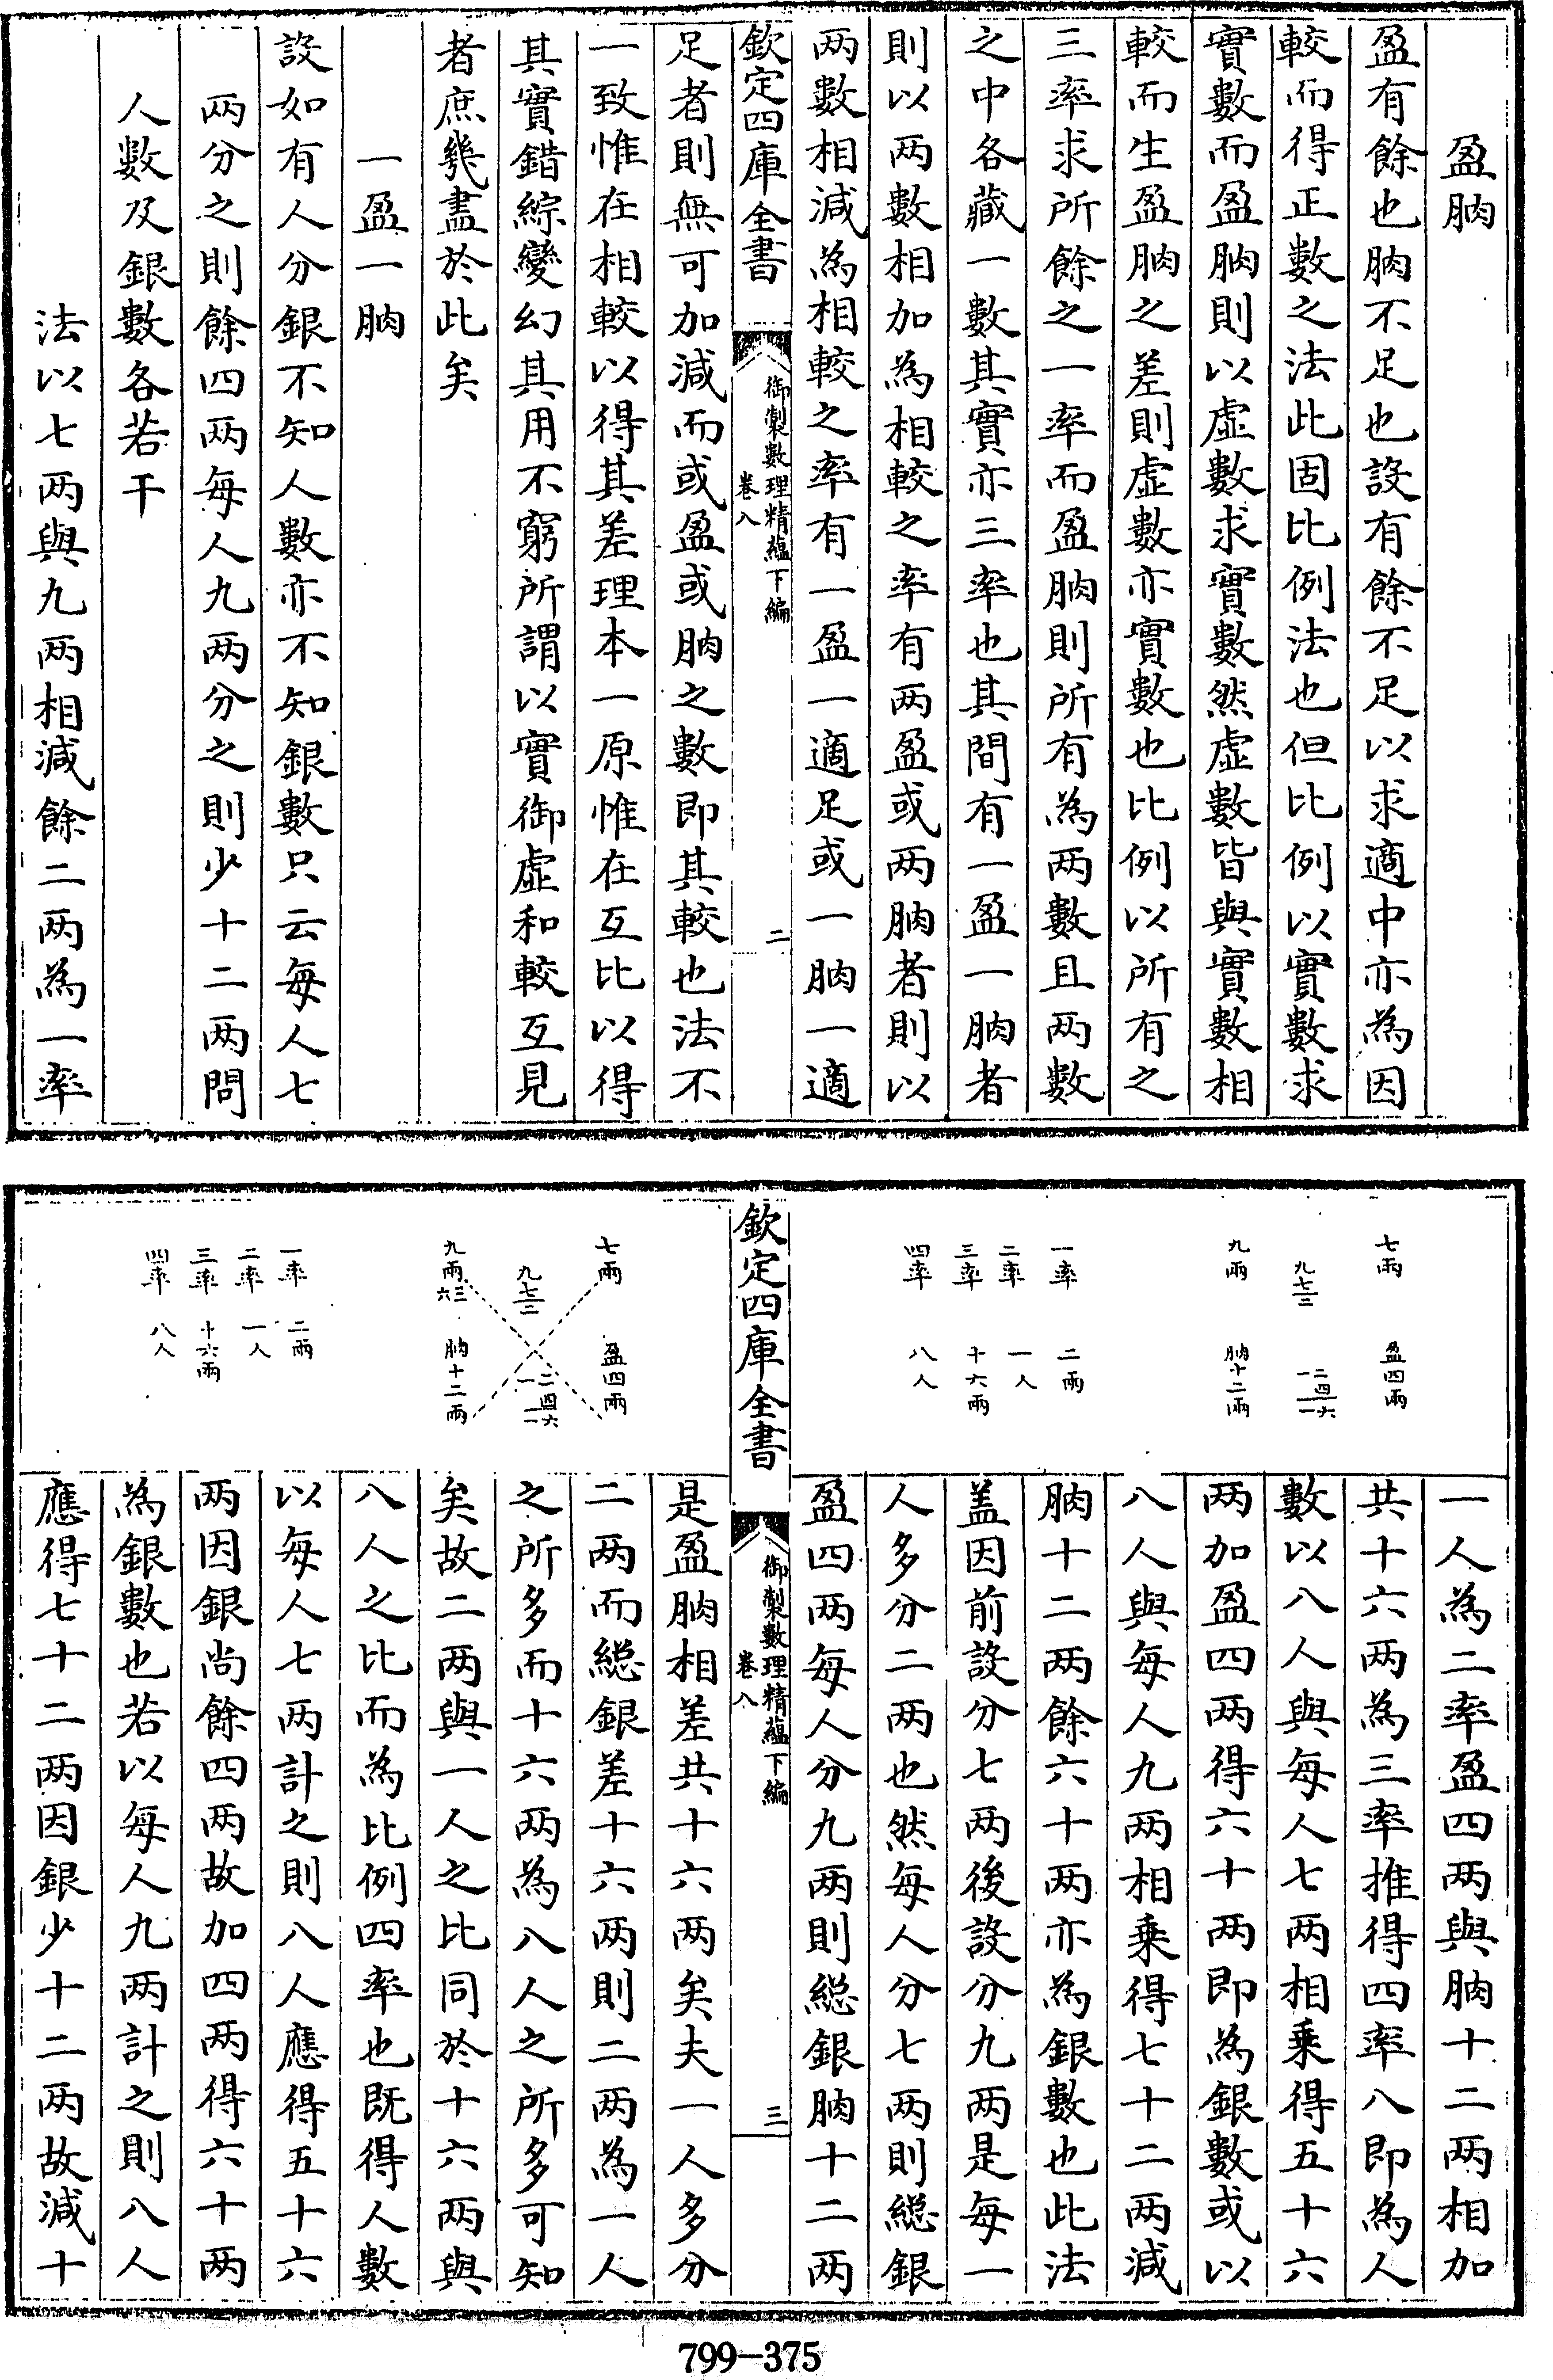 盈朒
盈有餘也朒不足也設有餘不足以求適中亦為因
較而得正數之法此固比例法也但比例以實數求
實數而盈朒則以虛數求實數然虛數皆與實數相
較而生盈朒之差則虛數亦實數也比例以所有之
三率求所餘之一率而盈朒則所有為两數且两數
之中各藏一數其實亦三率也其間有一盈一朒者
則以两數相加為相較之率有两盈或两朒者則以
两數相減為相較之率有一盈一適足或一朒一適
欽定四庫全書
御製數理精蘊下編
卷八
二
足者則無可加減而或盈或朒之數即其較也法不
一致惟在相較以得其差理本一原惟在互比以得
其實錯綜變幻其用不窮所謂以實御虛和較互見
者庶幾盡於此矣
一盈一朒
設如有人分銀不知人數亦不知銀數只云每人七
两分之則餘四两每人九两分之則少十二两問
人數及銀數各若干
法以七两與九两相減餘二两為一率
七兩
盈四兩
九七二
一二四一六
九兩
朒十二兩
一率 二兩
二率 一人
三率 十六兩
四率 八人
一人為二率盈四两與朒十二两相加
共十六两為三率推得四率八即為人
數以八人與每人七两相乗得五十六
两加盈四两得六十两即為銀數或以
八人與每人九两相乗得七十二两減
朒十二两餘六十两亦為銀數也此法
盖因前設分七两後設分九两是每一
人多分二两也然每人分七两則総銀
盈四两每人分九两則総銀朒十二两
欽定四庫全書
御製數理精蘊下編
卷八
三
七兩
盈四兩
九七二
一二四一六
九兩
六三
朒十二兩
一率 二兩
二率 一人
三率 十六兩
四率 八人
是盈朒相差共十六两矣夫一人多分
二两而総銀差十六两則二两為一人
之所多而十六两為八人之所多可知
矣故二两與一人之比同於十六两與
八人之比而為比例四率也既得人數
以每人七两計之則八人應得五十六
两因銀尚餘四两故加四两得六十两
為銀數也若以每人九两計之則八人
應得七十二两因銀少十二两故減十
799-375